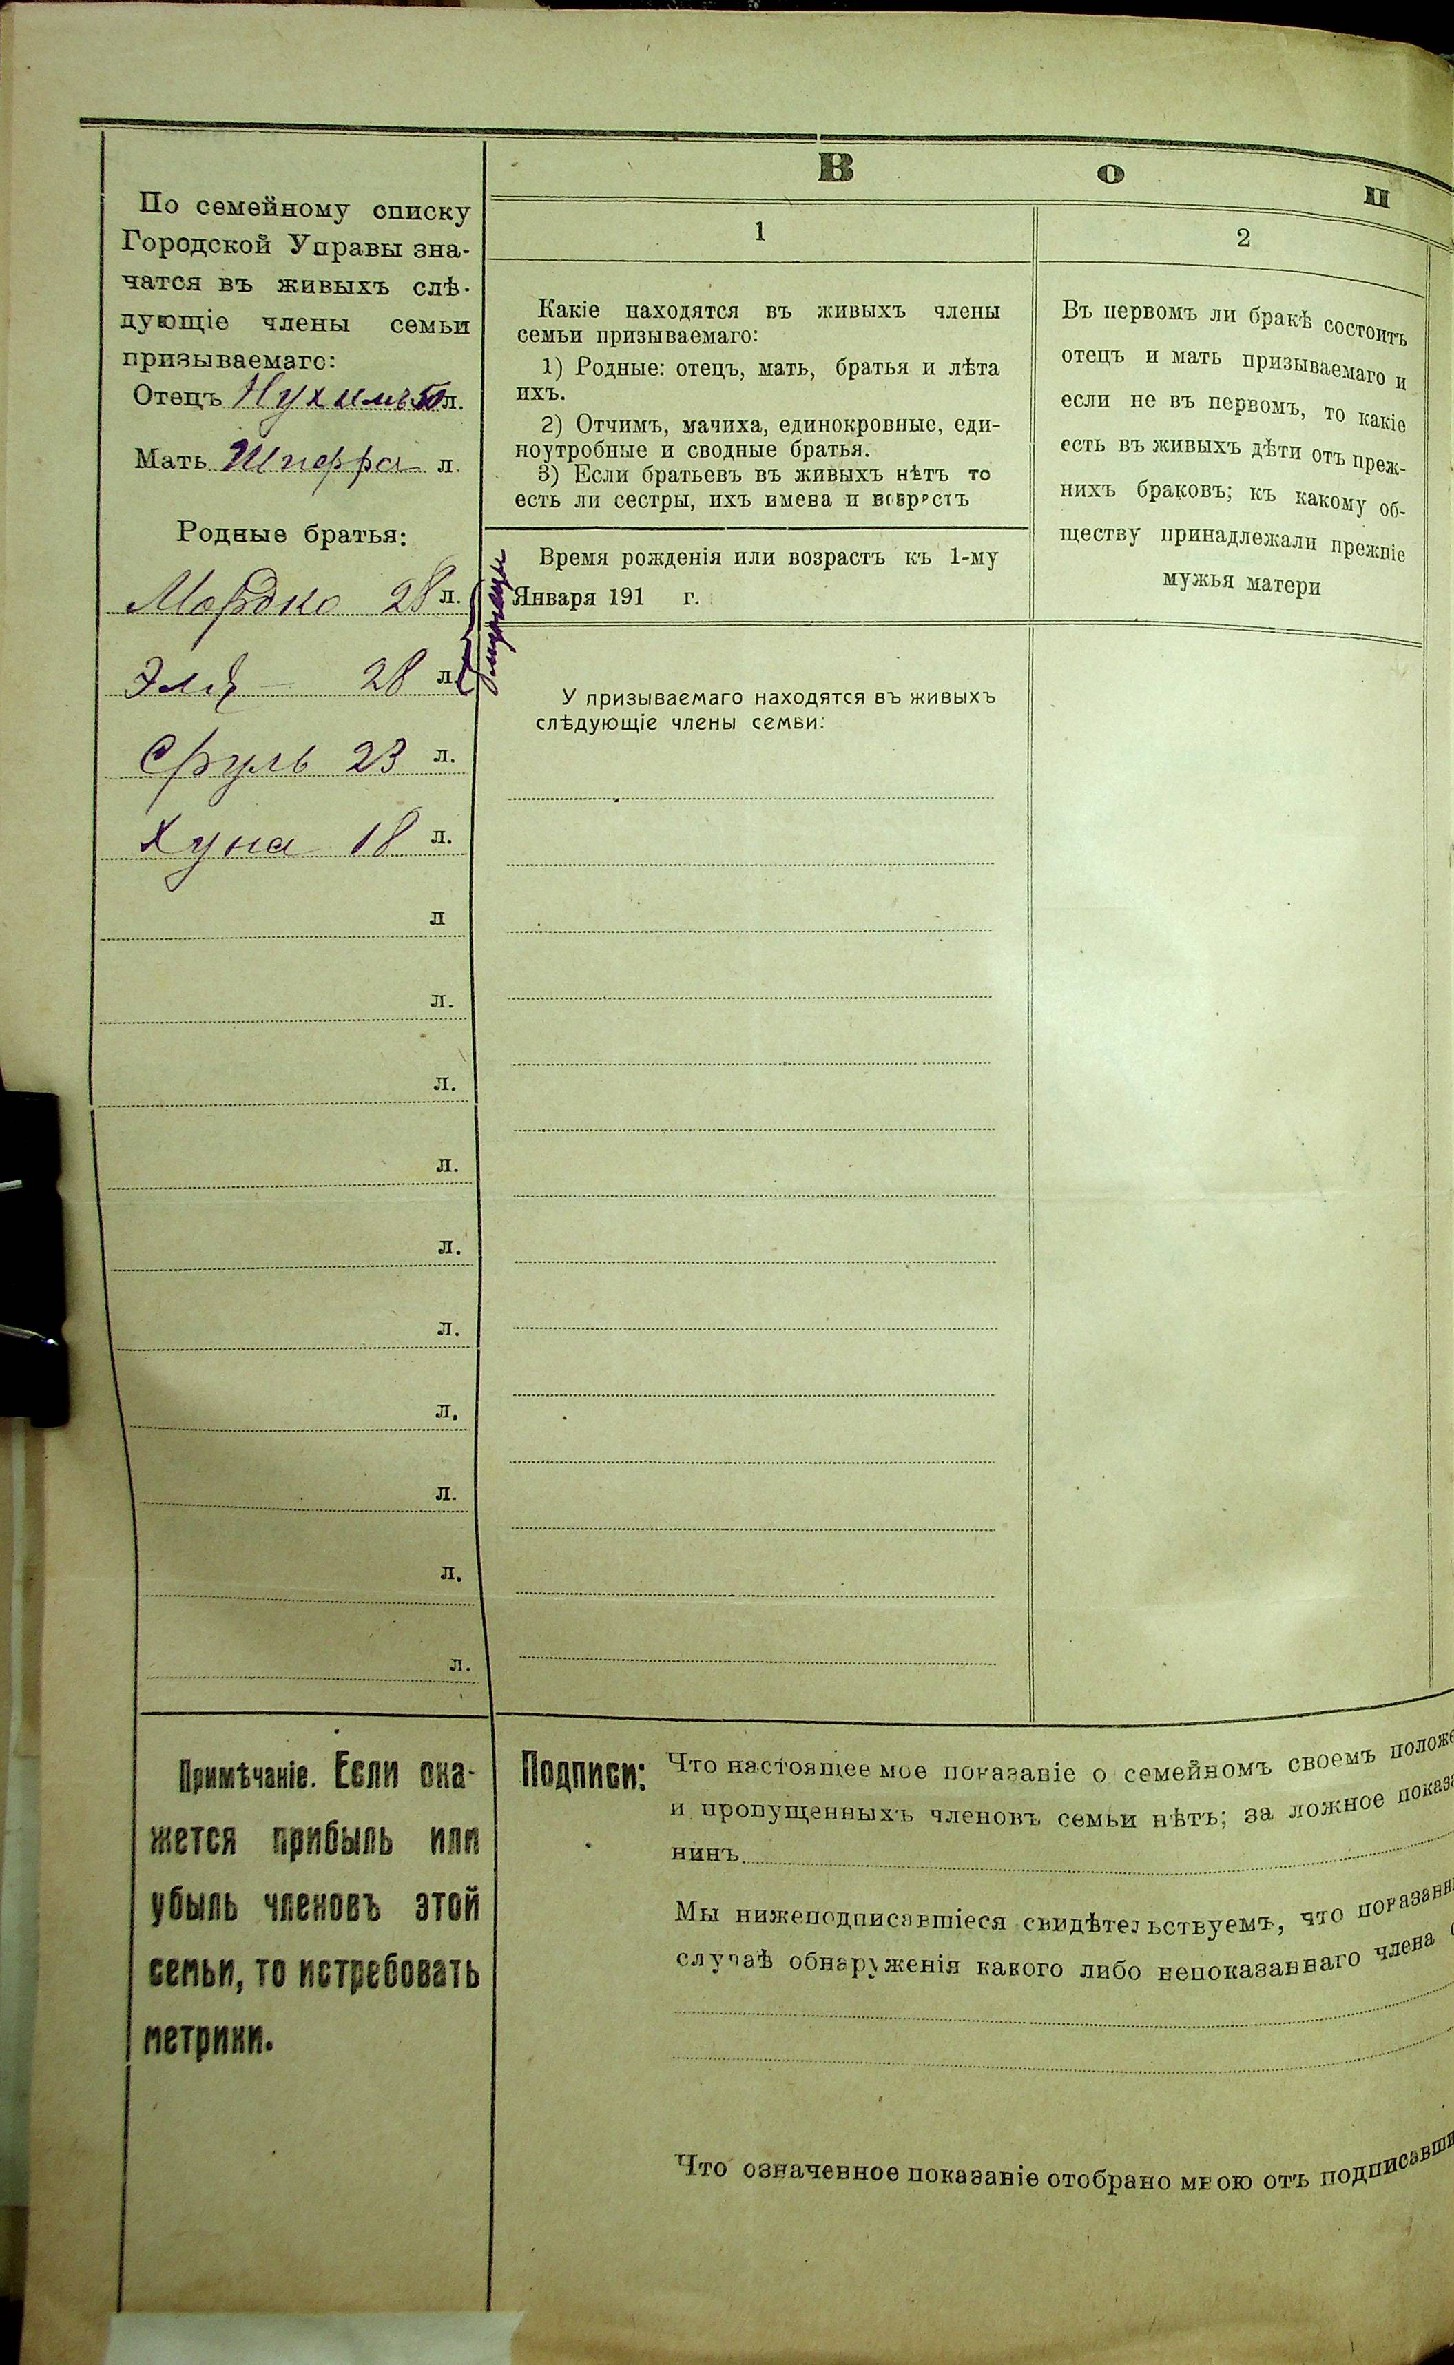 В о п
По семейному списку
Городской Управы зна-
чатся въ живыхъ слѣ-
дующіе члены семьи
призываемаго:
Отецъ Нухимъ 50 л.
Мать Шифра л.
Родные братья:
Мордко 28 л.
Эля - 28 л.
близнецы
Сруль 23 л.
Хуна 18 л.
л
л.
л.
л.
л.
л.
л.
л.
л.
л.
1
Какіе находятся въ живыхъ члены
семьи призываемаго:
1) Родные: отецъ, мать, братья и лѣта
ихъ.
2) Отчимъ, мачиха, единокровные, еди-
ноутробные и сводные братья.
3) Если братьевъ въ живыхъ нѣтъ то
есть ли сестры, ихъ имена и возрастъ
Время рожденія или возрастъ къ 1-му
Января 191 г.
У призываемаго находятся въ живыхъ
слѣдующіе члены семьи:
2
Въ первомъ ли бракѣ состоитъ
отецъ и мать призываемаго и
если не въ первомъ, то какіе
есть въ живыхъ дѣти отъ преж-
нихъ браковъ; къ какому об-
ществу принадлежали прежніе
мужья матери
Примѣчаніе. Если ока-
жется прибыль или
убыль членовъ этой
семьи, то истребовать
метрики.
Подписи: Что настоящее мое показаніе о семейномъ своемъ положе
и пропущенныхъ членовъ семьи нѣтъ; за ложное показа
нинъ
Мы нижеподписавшіеся свидѣтельствуемъ, что показанн
случаѣ обнаруженія какого либо непоказаннаго члена
Что означенное показаніе отобрано мною отъ подписавши